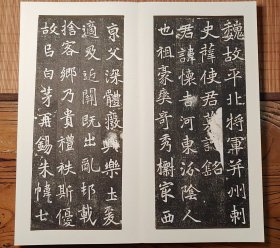 魏故平北將軍并州刺
史薛使君墓誌銘
君諱懷吉河東汾陰人
也祖豪矣奇秀擢家西
京父深體廢興樂土爰
適及近關既出亂邦載
捨客卿乃貴禮秩斯優
故㠯白茅再錫朱幃七